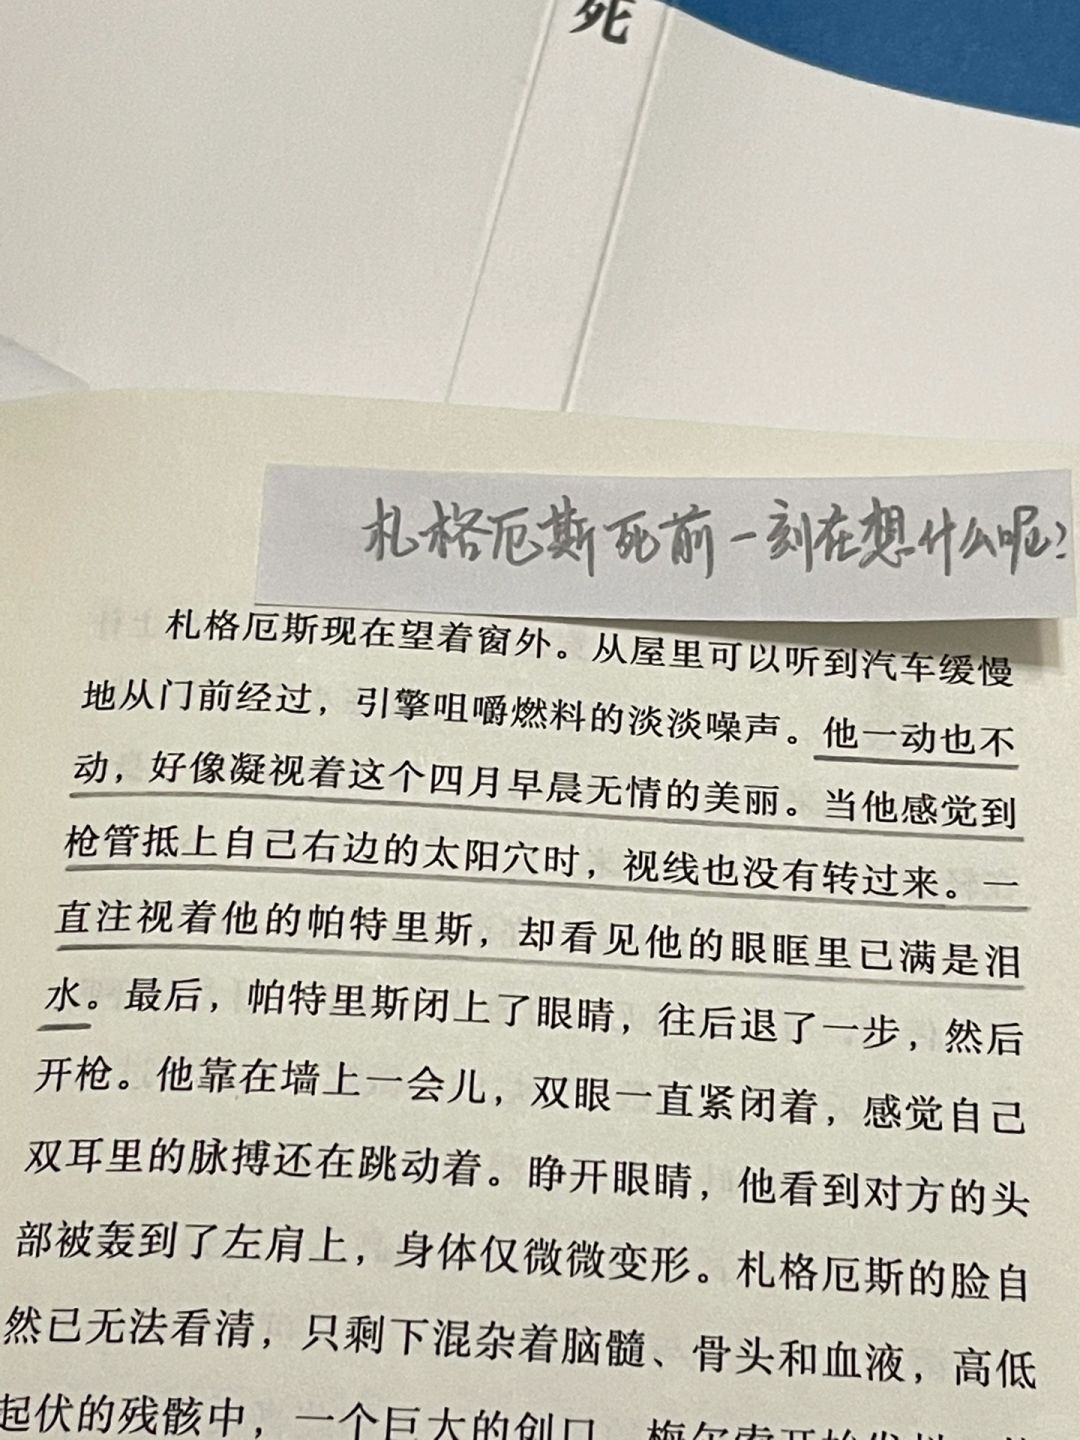 死
札格厄斯死前一刻在想什么呢?
札格厄斯现在望着窗外。从屋里可以听到汽车缓慢
地从门前经过，引擎咀嚼燃料的淡淡噪声。他一动也不
动，好像凝视着这个四月早晨无情的美丽。当他感觉到
枪管抵上自己右边的太阳穴时，视线也没有转过来。一
直注视着他的帕特里斯，却看见他的眼眶里已满是泪
水。最后，帕特里斯闭上了眼睛，往后退了一步，然后
开枪。他靠在墙上一会儿，双眼一直紧闭着，感觉自己
双耳里的脉搏还在跳动着。睁开眼睛，他看到对方的头
部被轰到了左肩上，身体仅微微变形。札格厄斯的脸自
然已无法看清，只剩下混杂着脑髓、骨头和血液，高低
起伏的残骸中，一个巨大的创口。梅尔索开始发